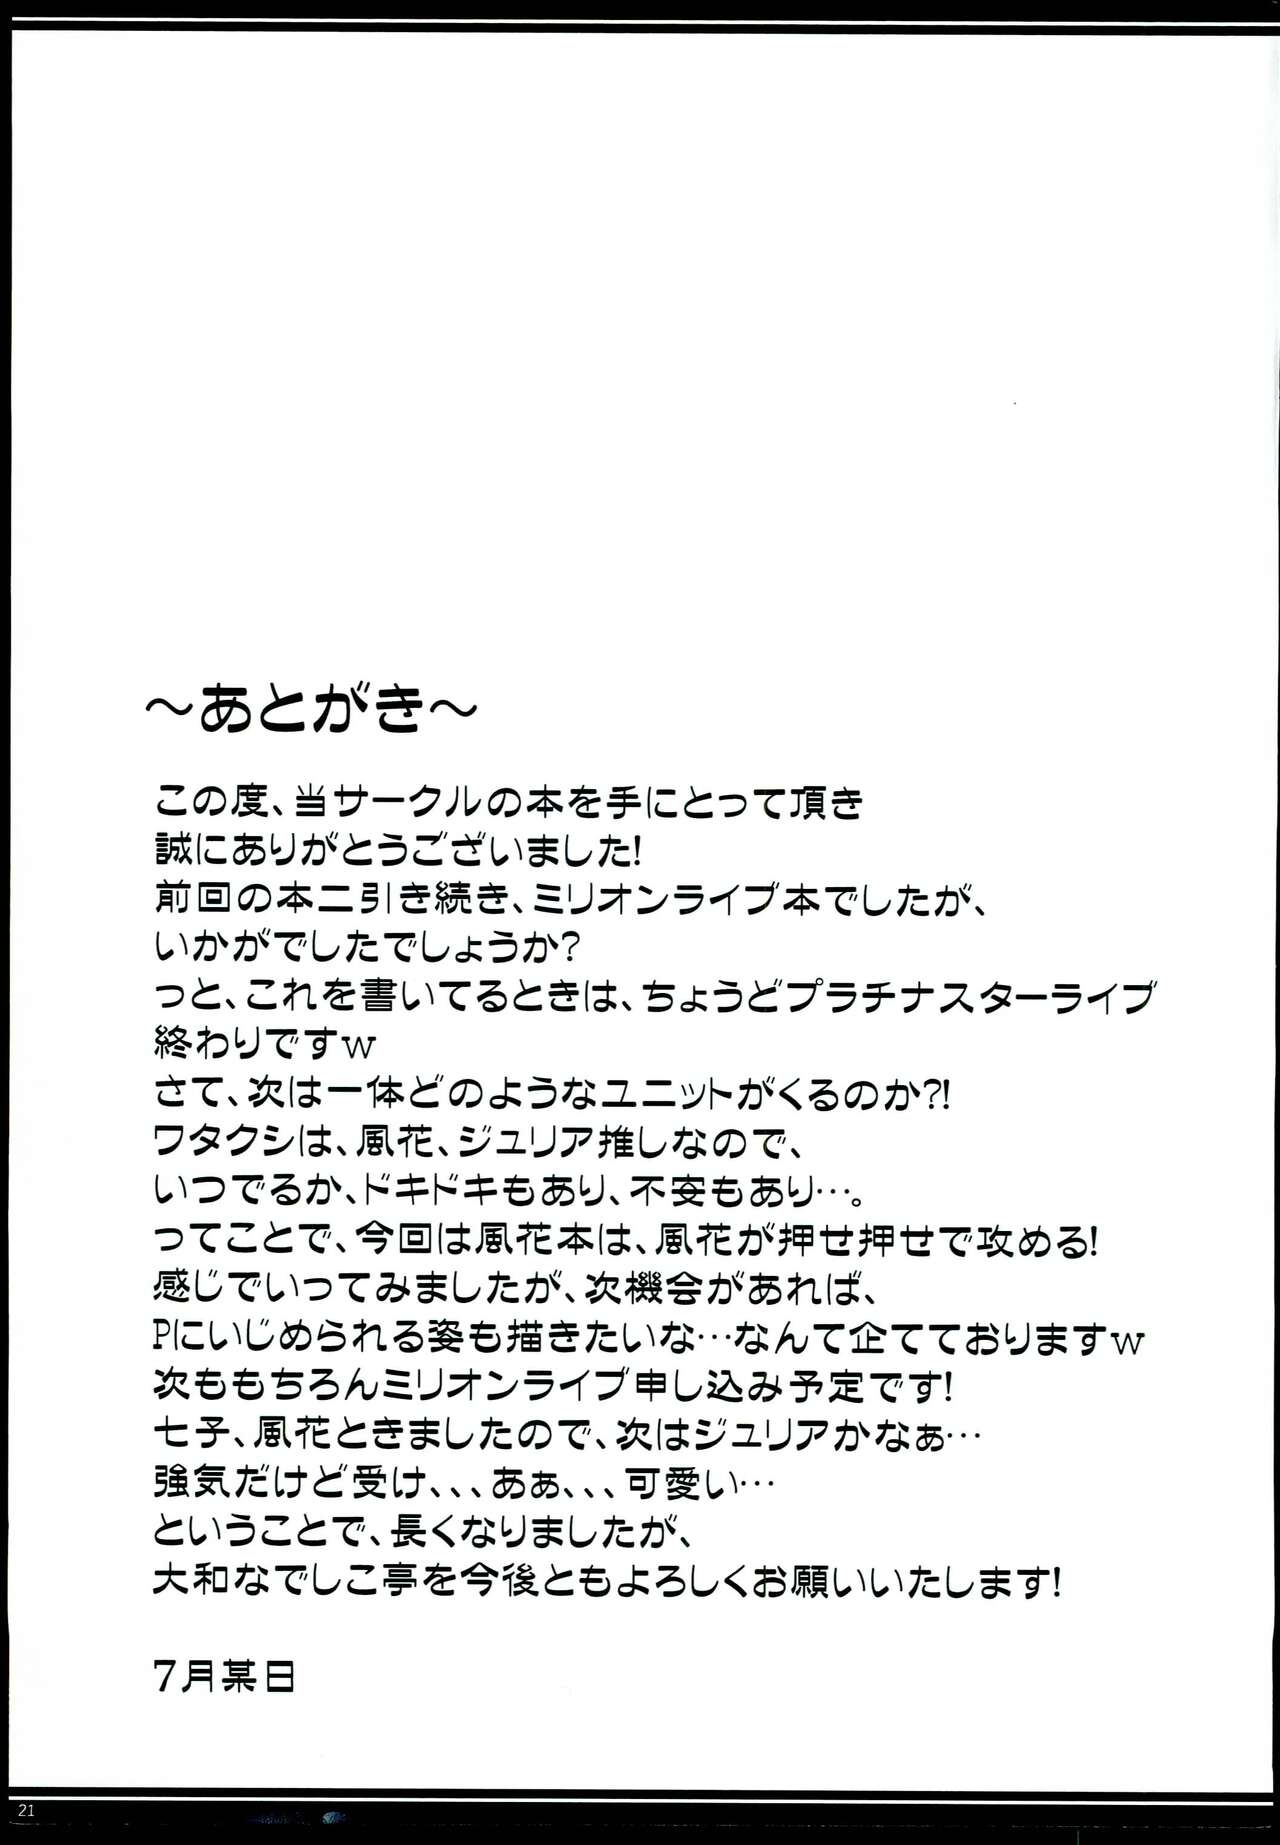 ～あとがき～
この度、当サークルの本を手にとって頂き
誠にありがとうございました!
前回の本二引き続き、ミリオンライブ本でしたが、
いかがでしたでしょうか?
っと、これを書いてるときは、ちょうどプラチナスターライブ
終わりですｗ
さて、次は一体どのようなユニットがくるのか?!
ワタクシは、風花、ジュリア推しなので、
いつでるか、ドキドキもあり、不安もあり…。
ってことで、今回は風花本は、風花が押せ押せで攻める!
感じでいってみましたが、次機会があれば、
Pにいじめられる姿も描きたいな…なんて企てておりますｗ
次ももちろんミリオンライブ申し込み予定です!
七子、風花ときましたので、次はジュリアかなぁ…
強気だけど受け、、、あぁ、、、可愛い…
ということで、長くなりましたが、
大和なでしこ亭を今後ともよろしくお願いいたします!
7月某日
21